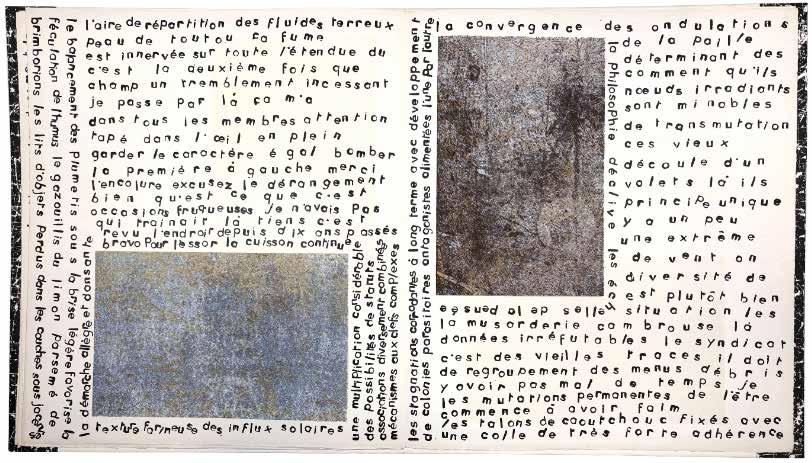 brimborions les lits d'objets perdus dans les couches sous
fécutation de thymus le gazouillis du limon parsemé de
le balancement des plumetis sous la brise légère favorise la
la démarche allégée et dansante
l'aire de répartition des fluides terreux
peau de toutou ça fume
est innervée sur toute l'étendue du
c'est la deuxième fois que
champ un tremblement incessant
je passe par là ça m'a
dans tous les membres attention
tapé dans l'œil en plein
garder le caractère égal bomber
la première à gauche merci
l'encolure excusez le dérangement
bien qu'est ce que c'est
occasions frugueuses je n'avais pas
qui trainait là tiens c'est
revu l'endroit depuis dix ans passés
bravo pour l'essor la cuisson continue
texture farineuse des influx solaires
une multiplication considérable
des possibilités de statuts
associations diversement combinées
mécanismes aux clefs complexes
les stagnations à long terme avec développement
de colonies parasitoires antagonistes alimentées l'une par l'autre
la convergence des ondulations
la philosophie déclive les
de la paille
déterminant des
comment qu'ils
nœuds irradiants
sont minables
de transmutation
ces vieux
découle d'un
volets là ils
principe unique
y a un peu
une extrême
de vent on
diversité de
est plutôt bien
selles de la pensée situation les
la musarderie cambrouse là
données irréfutables le syndicat
c'est des vieilles traces il doit
de regroupement des menus débris
y avoir pas mal de temps je
les mutations permanentes de l'être
commence à avoir faim
les talons de caoutchouc fixés avec
une colle de très forte adhérence